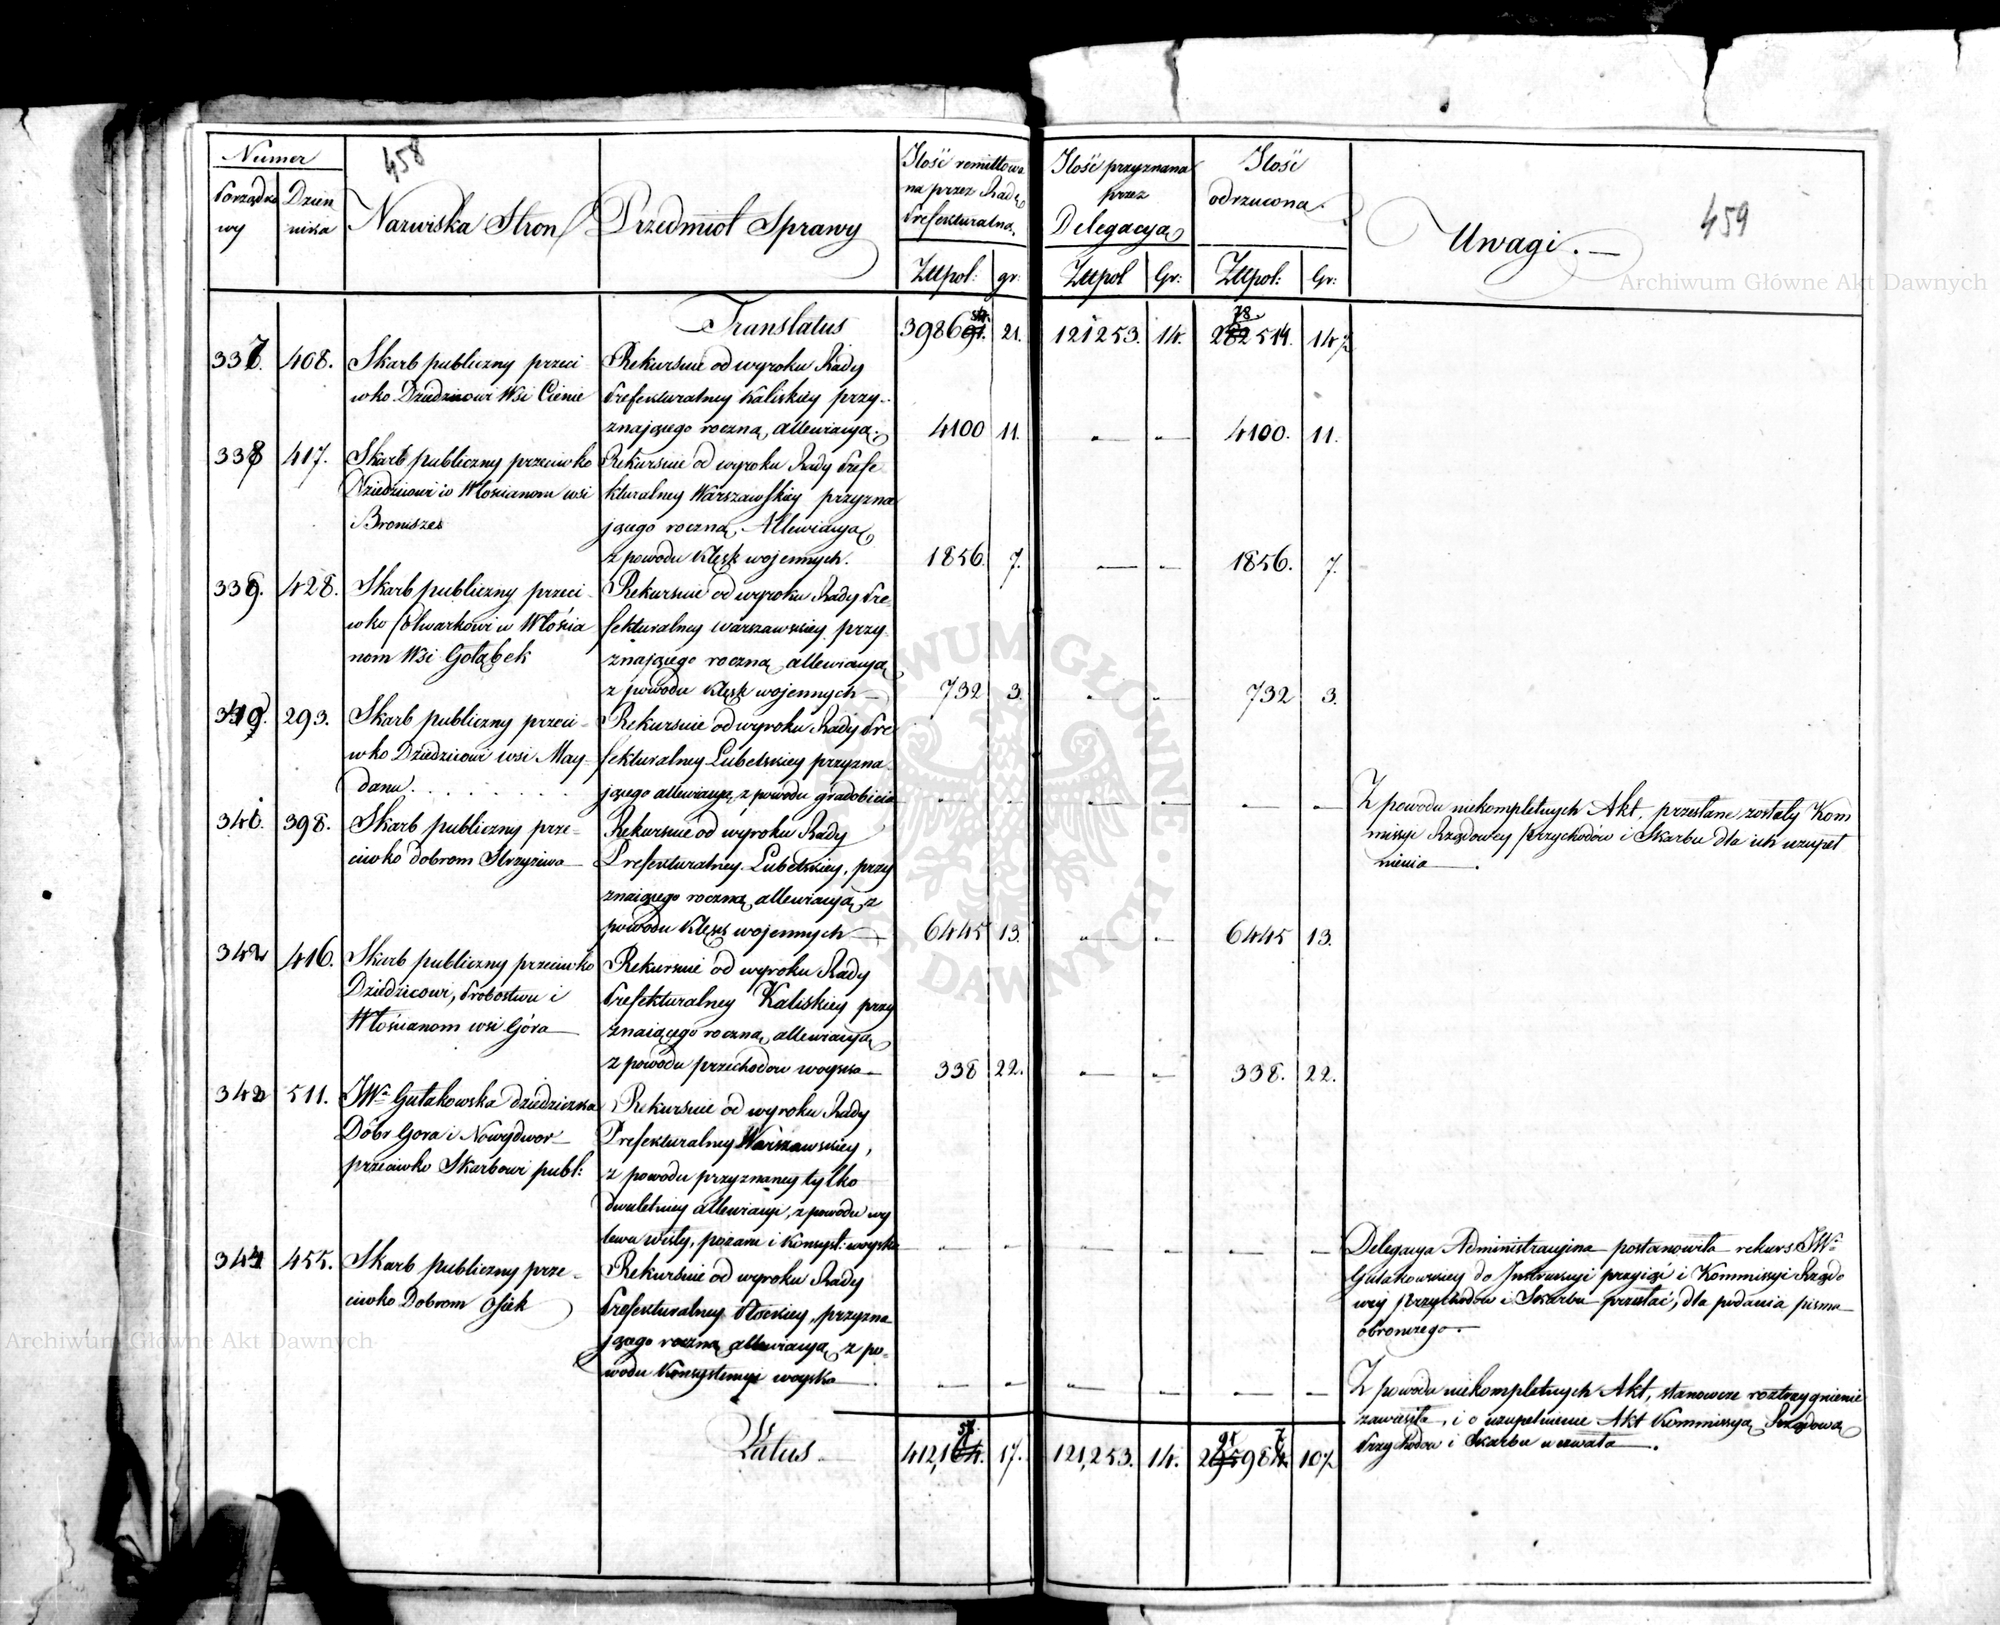 458
459
Numer
Porządko
wy
Dzien
nika
Nazwiska Stron
Przedmiot Sprawy
Ilość remittowa
na przez Radę
Prefekturalną.
Ilość przyznana
przez
Delegacyą
Ilość
odrzucona.
Uwagi. —
Złtpol: gr:
Złtpol Gr:
Złtpol: Gr:
Translatus 21. 121253. 14.
337. 408. Skarb publiczny przeci-
wko Dziedzicowi Wsi Cienie
Rekursuie od wyroku Rady
Prefekturalney Kaliskiey przy-
znaiącego roczną allewiacyą. 4100 11. „— „— 4100. 11.
338 417. Skarb publiczny przeciwko
Dziedzicowi io Włoscianom wsi
Bronisze
Rekursuie od wyroku Rady Prefe
kturalney Warszawskiey przyzna
jącego roczną Allewiacyą
z powodu Klęsk wojennych. 1856. 7. „— „— 1856. 7.
339. 428. Skarb publiczny przeci-
wko folwarkowi w Włościa
nom Wsi Gołąbek
Rekursuie od wyroku Rady Pre-
fekturalney warszawskiey przy-
znaiącego roczną allewiacyą
z powodu Klęsk wojennych — 732 3. „— „— 732 3.
293. Skarb publiczny przeci-
wko Dziedzicowi wsi May-
danu. . . . . . . . .
Rekursuie od wyroku Rady Pre
fekturalney Lubelskiey przyzna-
jącego allewiacyą z powodu gradobicia „— „— „— „— — —
Z powodu niekompletnych Akt, przesłane zostały Kom
missyi Rządowey Przychodów i Skarbu dla ich uzupeł
nienia —.
341. 398. Skarb publiczny prze-
ciwko dobrom Strzyżewa
Rekursuie od wyroku Rady
Prefekturalney Lubelskiey, przy
znaiącego roczną allewiacyą z
powodu Klęsk wojennych — 6445 13. „— „— 6445 13.
342 416. Skarb publiczny przeciwko
Dziedzicowi, Probostwu i
Włościanom wsi Góra —
Rekursuie od wyroku Rady
Prefekturalney Kaliskiey przy
znaiącego roczną allewiacyą
z powodu przechodow woyska — 338 22. „— „— 338. 22.
511. JWa Gutakowska dziedziczka
Dóbr Gora i Nowydwor —
przeciwko Skarbowi publ:
Rekursuie od wyroku Rady
Prefekturalney Warszawskiey,
z powodu przyznaney tylko
dwuletniey allewiacyi, z powodu wy
lewu wisły, pożaru i Konsyst: woyska „— „— „— „— — —
Delegacya Administracyina postanowiła rekurs JWa
Gutakowskiey do Instrukcyi przyiąć i Kommissyi Rządo
wey Przychodów i Skarbu przesłać, dla podania pisma
obronnego. —
344 455. Skarb publiczny prze-
ciwko Dobrom Osiek
Rekursuie od wyroku Rady
Prefekturalney Płockiey, przyzna
jącego roczną allewiacyą z po-
wodu Konsystencyi woyska —. „— „— „— — — —
Z powodu niekompletnych Akt, stanowcze roztrzygnienie
zawiesiła, i o uzupełnienie Akt Kommissyą Rządową
Przychodow i Skarbu wezwała —.
Latus — 17. 121,253. 14.
Archiwum Główne Akt Dawnych
Archiwum Główne Akt Dawnych
ARCHIWUM GŁÓWNE AKT DAWNYCH